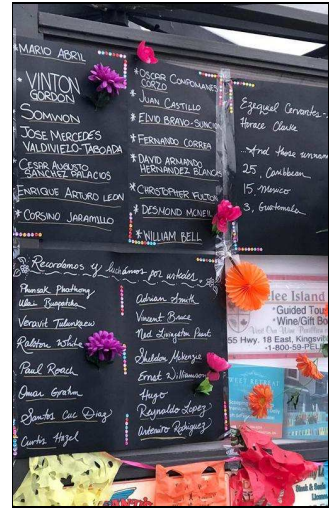 *MARIO ABRIL
* VINTON
GORDON
SOMVVON
JOSE MERCEDES
VALDIVIELO-TABOADA
CESAR AUGUSTO
SANCHEZ PALACIOS
ENRIQUE ARTURO LEON
* CORSINO JARAMILLO
*OSCAR COMPOMANES
CORZO
* JUAN CASTILLO
* ELVIO BRAVO-SUNCIO
* FERNANDO CORREA
* DAVID ARMANDO
HERNANDEZ BLANCAS
*CHRISTOPHER FULTON
* DESMOND MCNEIL
*WILLIAM BELL
Ezequiel Cervantes
Horace Clarke
And those unnam
25, Caribbean
15, Mexico
3, Guatemala
Recordamos y luchamos por ustedes
Phansak Phothong
Veravit Tulunkaew
Ralston White
Paul Roach
Omar Graham
Santos Cuc Diaz
Curtis Hazel
Adrian Smith
Vincent Bruce
Ned Livingston Peart
Sheldon Mckenzie
Ernst Williamson
Hugo
Reynaldo Lopez
Artemiro Rodriguez
lee Island
Guided Tou
Wine/Gift Bo
55 Hwy. 18 East, Kingsvil
-1-800-59-PELE
WEST RETREAT